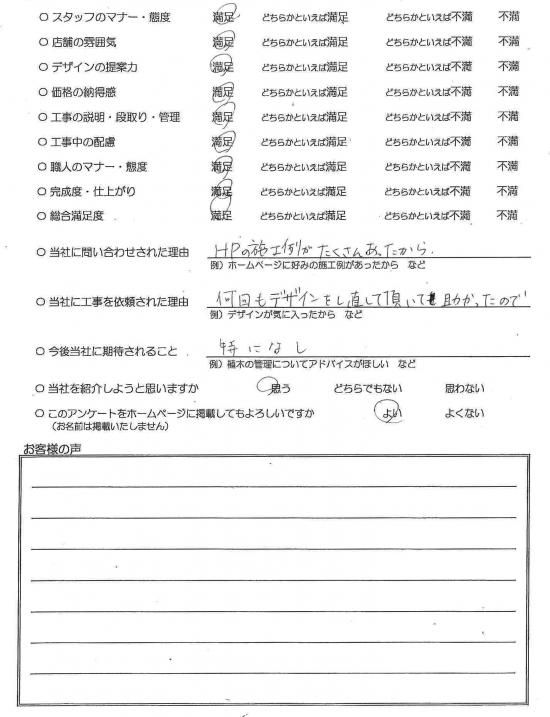 ○ スタッフのマナー・態度 満足 どちらかといえば満足 どちらかといえば不満 不満
○ 店舗の雰囲気 満足 どちらかといえば満足 どちらかといえば不満 不満
○ デザインの提案力 満足 どちらかといえば満足 どちらかといえば不満 不満
○ 価格の納得感 満足 どちらかといえば満足 どちらかといえば不満 不満
○ 工事の説明・段取り・管理 満足 どちらかといえば満足 どちらかといえば不満 不満
○ 工事中の配慮 満足 どちらかといえば満足 どちらかといえば不満 不満
○ 職人のマナー・態度 満足 どちらかといえば満足 どちらかといえば不満 不満
○ 完成度・仕上がり 満足 どちらかといえば満足 どちらかといえば不満 不満
○ 総合満足度 満足 どちらかといえば満足 どちらかといえば不満 不満
○ 当社に問い合わせされた理由 HPの施工例がたくさんあったから.
例）ホームページに好みの施工例があったから など
○ 当社に工事を依頼された理由 何回もデザインをし直して頂いて助かったので
例）デザインが気に入ったから など
○ 今後当社に期待されること 特になし
例）植木の管理についてアドバイスがほしい など
○ 当社を紹介しようと思いますか 思う どちらでもない 思わない
○ このアンケートをホームページに掲載してもよろしいですか よい よくない
（お名前は掲載いたしません）
お客様の声